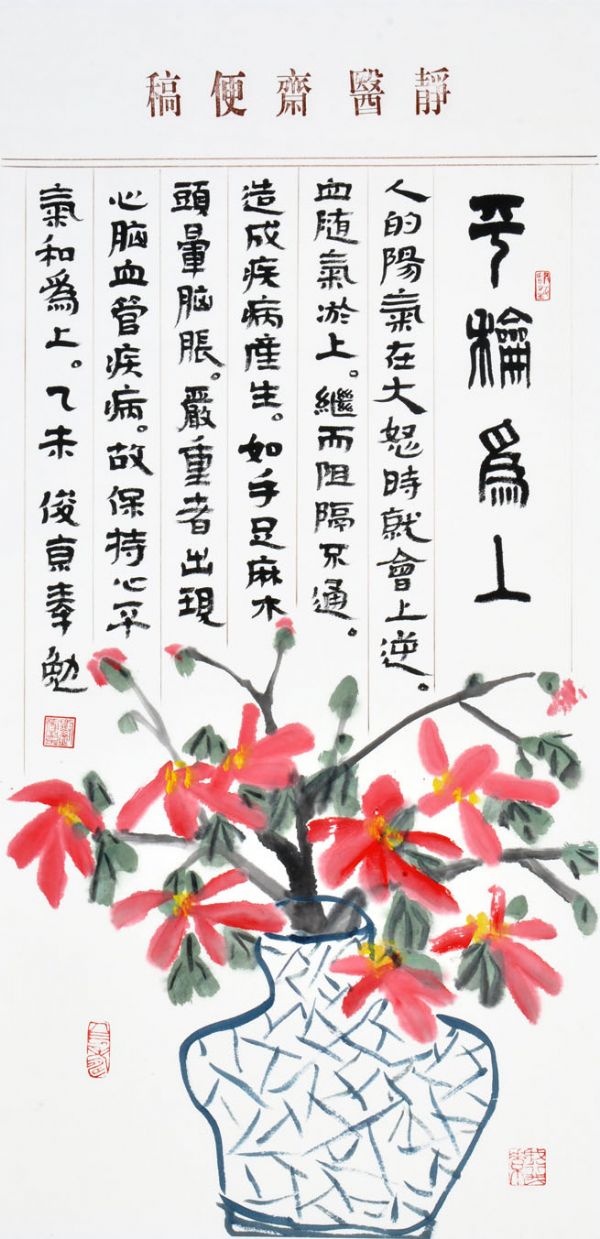 靜醫齋便稿
平龢爲上
人的陽氣在大怒時就會上逆。
血随氣淤上。繼而阻隔不通。
造成疾病產生。如手足麻木
頭暈脑脹。嚴重者出現
心脑血管疾病。故保持心平
氣和爲上。乙未 俊京奉勉